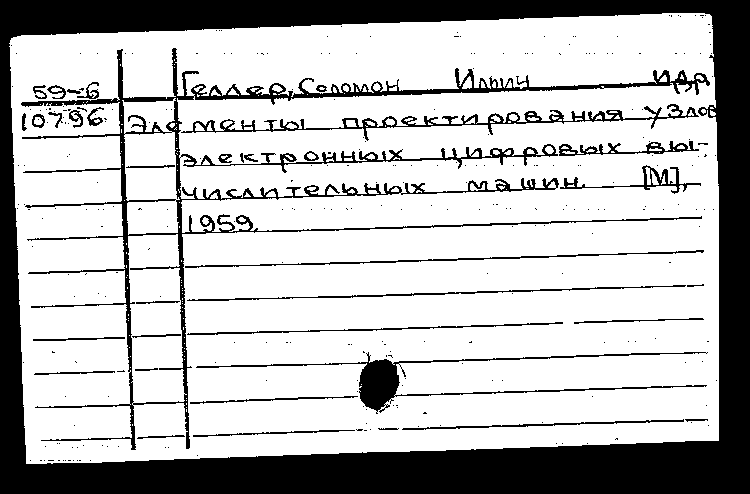 59-6 Геллер, Соломон Ильич и др
10796 Элементы проектирования узлов
электронных цифровых вы-
числительных машин. [М],
1959.